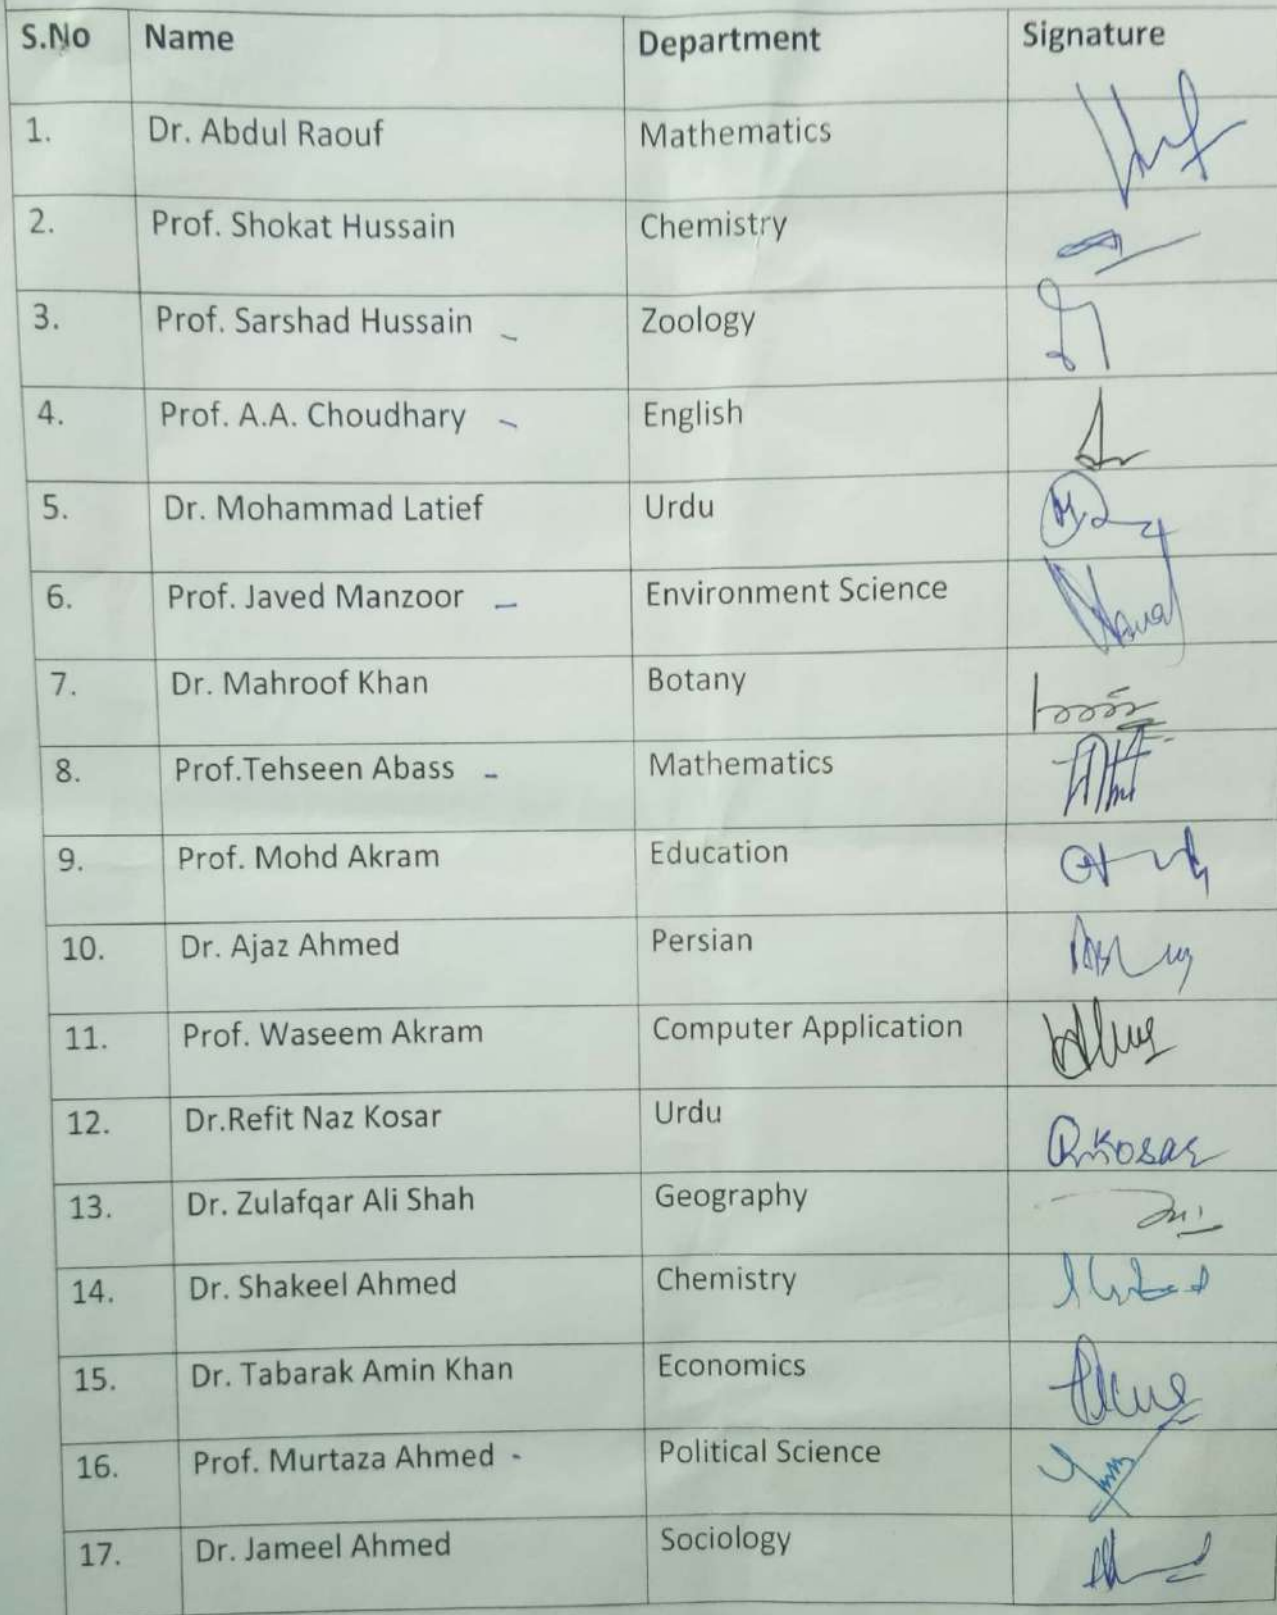 S.No Name Department Signature
1. Dr. Abdul Raouf Mathematics
2. Prof. Shokat Hussain Chemistry
3. Prof. Sarshad Hussain Zoology
4. Prof. A.A. Choudhary English
5. Dr. Mohammad Latief Urdu
6. Prof. Javed Manzoor Environment Science
7. Dr. Mahroof Khan Botany
8. Prof.Tehseen Abass Mathematics
9. Prof. Mohd Akram Education
10. Dr. Ajaz Ahmed Persian
11. Prof. Waseem Akram Computer Application
12. Dr.Refit Naz Kosar Urdu
13. Dr. Zulafqar Ali Shah Geography
14. Dr. Shakeel Ahmed Chemistry
15. Dr. Tabarak Amin Khan Economics
16. Prof. Murtaza Ahmed Political Science
17. Dr. Jameel Ahmed Sociology